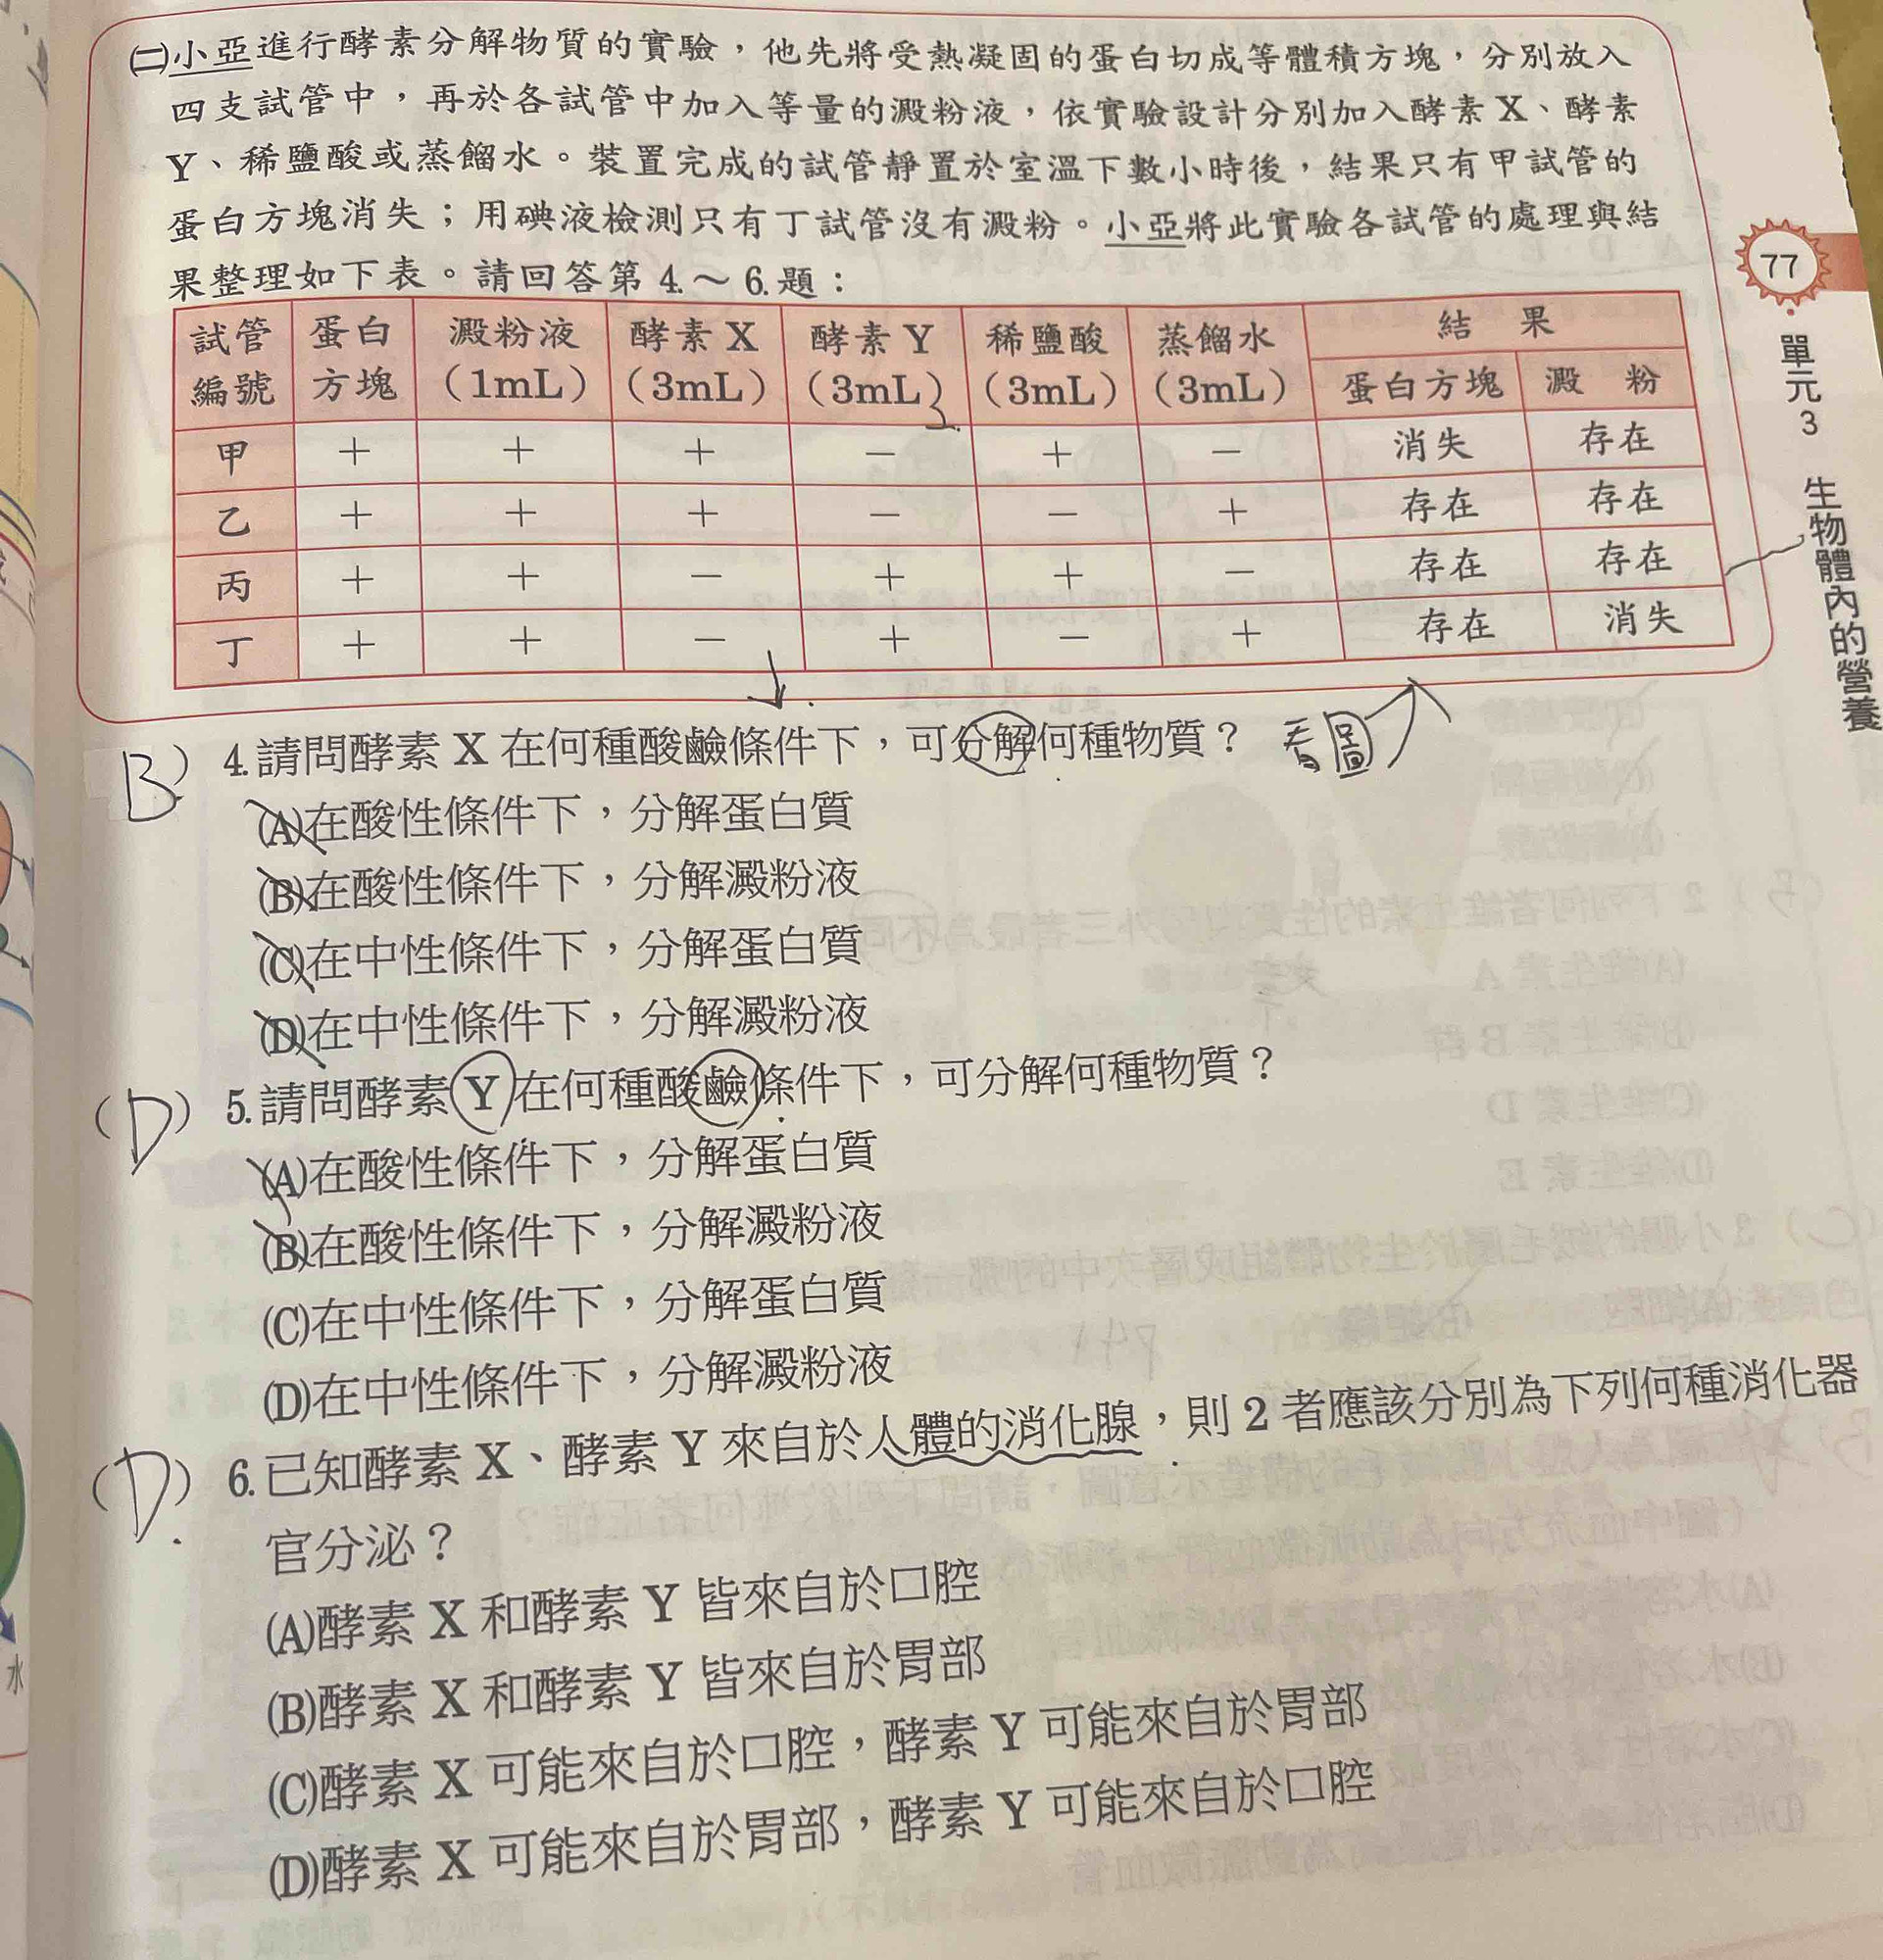 ㈡小亞進行酵素分解物質的實驗，他先將受熱凝固的蛋白切成等體積方塊，分別放入
四支試管中，再於各試管中加入等量的澱粉液，依實驗設計分別加入酵素X、酵素
Y、稀鹽酸或蒸餾水。裝置完成的試管靜置於室溫下數小時後，結果只有甲試管的
蛋白方塊消失；用碘液檢測只有丁試管沒有澱粉。小亞將此實驗各試管的處理與結
果整理如下表。請回答第4.～6.題：
試管編號 蛋白方塊 澱粉液（1mL） 酵素X（3mL） 酵素Y（3mL） 稀鹽酸（3mL） 蒸餾水（3mL） 結果
蛋白方塊 澱粉
甲 ＋ ＋ ＋ － ＋ － 消失 存在
乙 ＋ ＋ ＋ － － ＋ 存在 存在
丙 ＋ ＋ － ＋ ＋ － 存在 存在
丁 ＋ ＋ － ＋ － ＋ 存在 消失
B） 4.請問酵素X在何種酸鹼條件下，可分解何種物質？ 看圖
(A)在酸性條件下，分解蛋白質
(B)在酸性條件下，分解澱粉液
(C)在中性條件下，分解蛋白質
(D)在中性條件下，分解澱粉液
（D） 5.請問酵素Y在何種酸鹼條件下，可分解何種物質？
(A)在酸性條件下，分解蛋白質
(B)在酸性條件下，分解澱粉液
(C)在中性條件下，分解蛋白質
(D)在中性條件下，分解澱粉液
（D） 6.已知酵素X、酵素Y來自於人體的消化腺，則2者應該分別為下列何種消化器
官分泌？
(A)酵素X和酵素Y皆來自於口腔
(B)酵素X和酵素Y皆來自於胃部
(C)酵素X可能來自於口腔，酵素Y可能來自於胃部
(D)酵素X可能來自於胃部，酵素Y可能來自於口腔
77
單元3 生物體內的營養
水